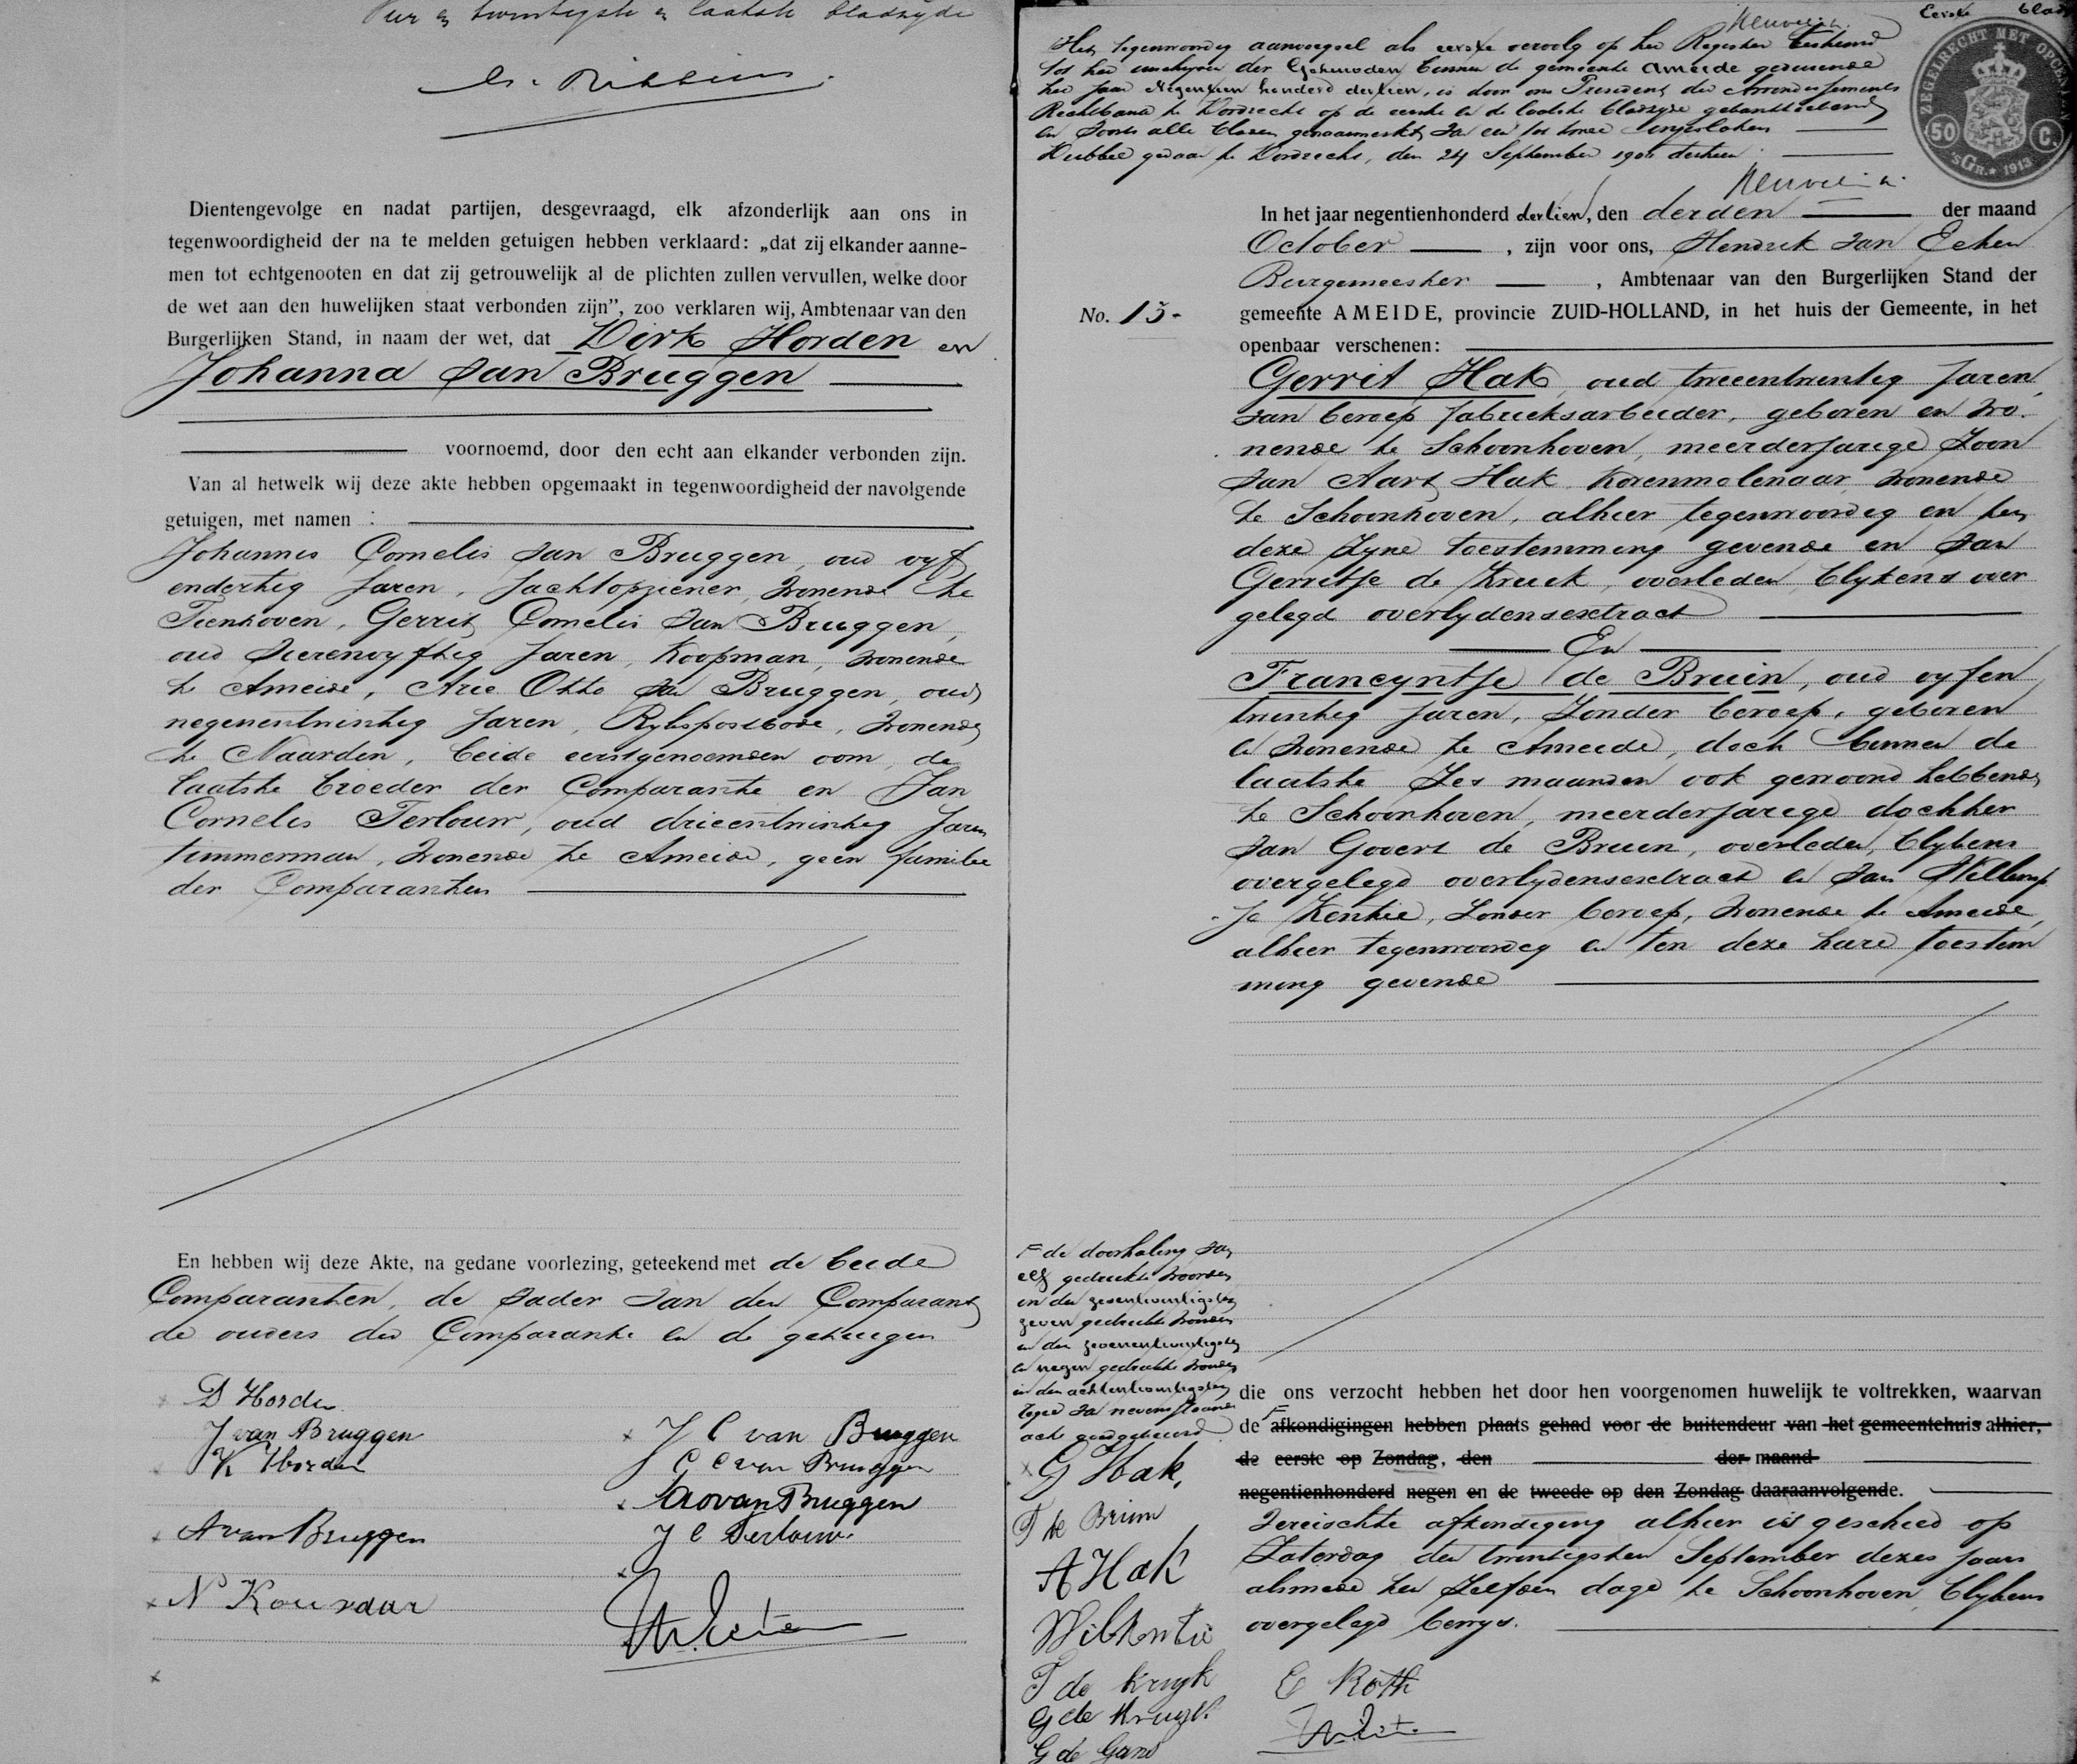 Vier en twintigste en laatste bladzijde
Dientengevolge en nadat partijen, desgevraagd, elk afzonderlijk aan ons in
tegenwoordigheid der na te melden getuigen hebben verklaard: „dat zij elkander aanne-
men tot echtgenooten en dat zij getrouwelijk al de plichten zullen vervullen, welke door
de wet aan den huwelijken staat verbonden zijn”, zoo verklaren wij, Ambtenaar van den
Burgerlijken Stand, in naam der wet, dat Dirk Horden en
Johanna van Bruggen
voornoemd, door den echt aan elkander verbonden zijn.
Van al hetwelk wij deze akte hebben opgemaakt in tegenwoordigheid der navolgende
getuigen, met namen :
Johannis Cornelis van Bruggen, oud vyf
endertig jaren, jachtopziener, wonende te
Tienhoven, Gerrit Cornelis van Bruggen,
oud vierenvyftig jaren, koopman, wonende
te Ameide, Arie Otto van Bruggen, oud
negenentwintig jaren, Rykspostbode, wonende
te Naarden, beide eerstgenoemden oom, de
laatste broeder der Comparante en Jan
Cornelis Terlouw, oud drieentwintig jaren
timmerman, wonende te Ameide, geen familie
der Comparanten
En hebben wij deze Akte, na gedane voorlezing, geteekend met de beide
Comparanten, de vader van den Comparant
de ouders der Comparante en de getuigen
D Horden
J van Bruggen
K Horden
A van Bruggen
J C van Bruggen
G C van Bruggen
A O van Bruggen
J C Terlouw.
Eerste blad
Het tegenwoordig aanvoegsel als eerste vervolg op het Register bestemd
tot het inschryven der Geboden binnen de gemeente Ameide gedurende
het jaar Negentien honderd dertien, is door ons President der Arrondissements
Rechtbank te Dordrecht op de eerste en de laatste bladzyde gehandteekend
en voorts alle bladen genaamerkt van een tot twee ingesloten
Dubbel gedaan te Dordrecht, den 24 September 1900 dertien
ZEGELRECHT MET OPCENTEN
50 C.
'sGR. * 1913
In het jaar negentienhonderd dertien, den derden der maand
October , zijn voor ons, Hendrik van Eeten
Burgemeester , Ambtenaar van den Burgerlijken Stand der
No. 13- gemeente AMEIDE, provincie ZUID-HOLLAND, in het huis der Gemeente, in het
openbaar verschenen:
Gerrit Hak, oud tweeentwintig jaren,
van beroep fabrieksarbeider, geboren en wo-
nende te Schoonhoven, meerderjarige zoon
van Aart Hak korenmolenaar wonende
te Schoonhoven, alhier tegenwoordig en ten
deze zyne toestemming gevende en van
Gerritje de Kruik, overleden, blykens over
gelegd overlydensextract
En
Francyntje de Bruin, oud vyfen
twintig jaren, zonder beroep, geboren
en wonende te Ameide, doch binnen de
laatste zes maanden ook gewoond hebbende
te Schoonhoven, meerderjarige dochter
van Govert de Bruin, overleden, blykens
overgelegd overlydensextract en van Willemp
je Kentie, zonder beroep, wonende te Ameide,
alhier tegenwoordig en ten deze hare toestem
ming gevende
F de doorhaling van
elf gedrukte woorden
in den zesentwintigsten
zeven gedrukte woorden
in den zevenentwintigsten
en negen gedrukte woorden
in den achtentwintigsten
regel van nevenstaande
acte goedgekeurd
G Hak,
F de Bruin
A Hak
W Kentie
T de Kruyk
G de Kruyk
die ons verzocht hebben het door hen voorgenomen huwelijk te voltrekken, waarvan
de F afkondigingen hebben plaats gehad voor de buitendeur van het gemeentehuis alhier,
de eerste op Zondag, den der maand
negentienhonderd negen en de tweede op den Zondag daaraanvolgende.
vereischte afkondiging alhier is geschied op
Zaterdag den twintigsten September dezes jaars
alsmede ten zelfden dage te Schoonhoven blykens
overgelegd bewys.
E Roth